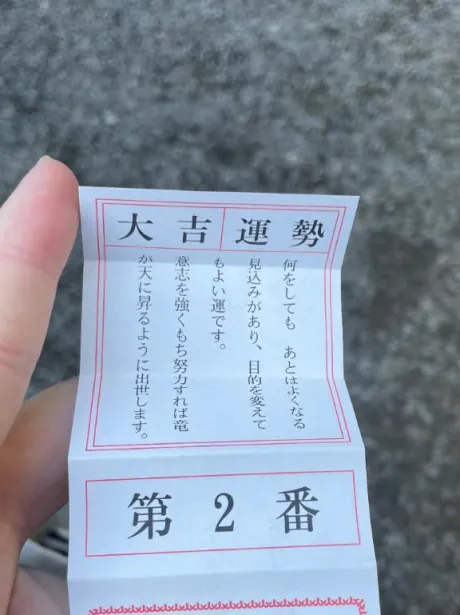 大吉 運勢
何をしても あとはよくなる
見込みがあり、目的を変えて
もよい運です。
意志を強くもち努力すれば竜
が天に昇るように出世します。
第2番